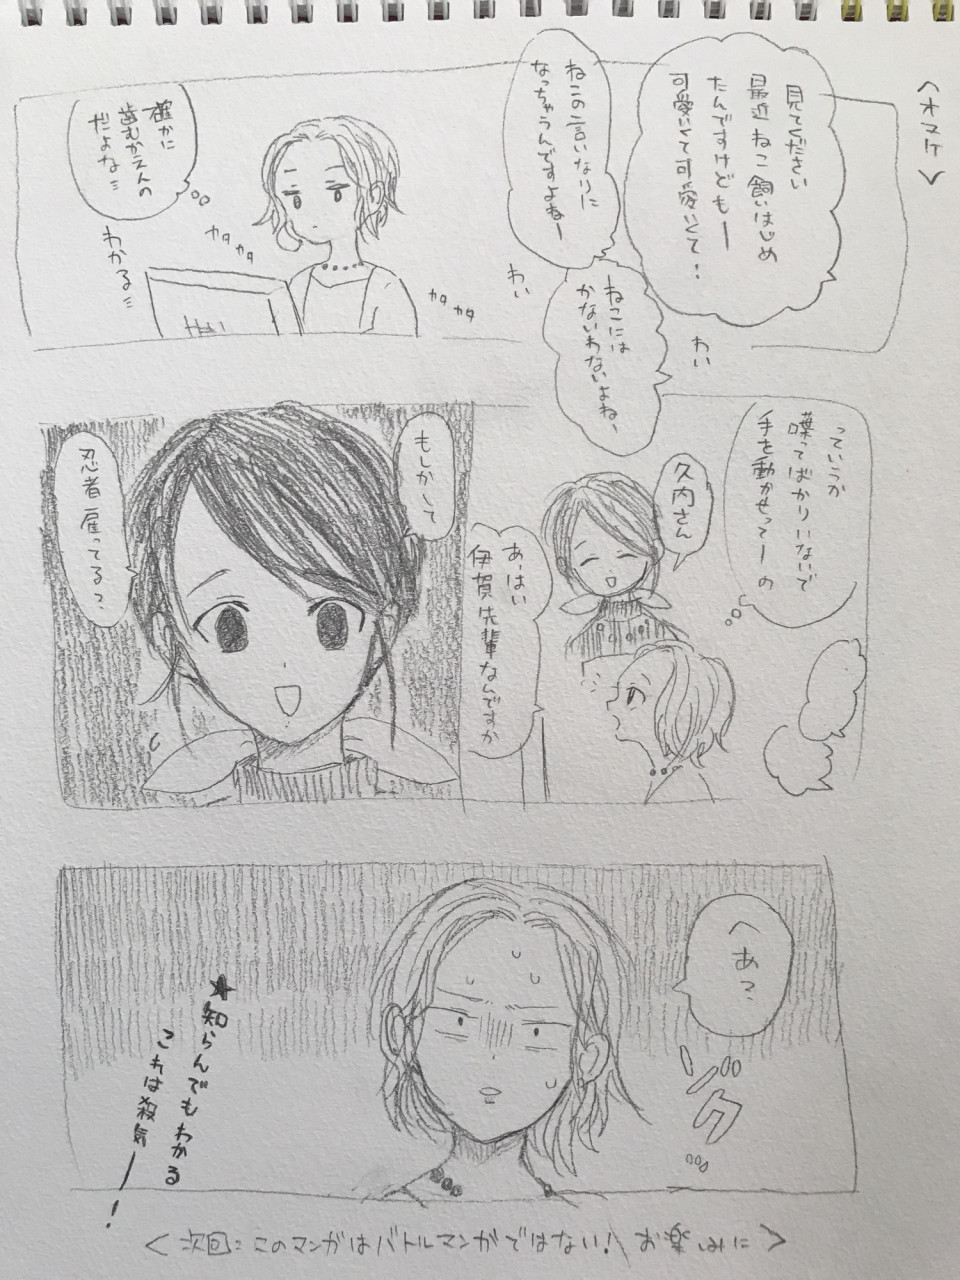 <オマケ>
見てください
最近ねこ飼いはじめ
たんですけどもー
可愛いくて可愛いくて!
ねこの言いなりに
なっちゃうんですよねー
ねこには
かないわないよねぃ
わい
わい
カタ
カタ
カタ
カタ
確かに
歯むかえんの
だよな…
わかる…
っていうか
喋ってばかりいないで
手を動かせってーの
久内さん
あ、はい
伊賀先輩なんですか
もしかして
忍者雇ってる?
へあ?
ゾクッ
★知らんでもわかる
これは殺気ー!
<次回:このマンガはバトルマンガではない! お楽しみに>